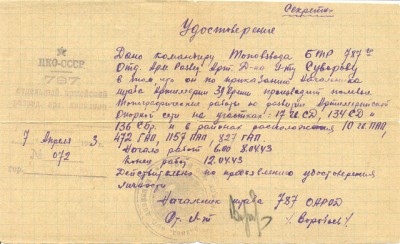 Секретно
Удостоверение
НКО-СССР
787
Дано командиру Топовзвода БТР 787го
Отд. Арм. Развед. Арт. Д-на л-ту Суворову
в том, что он по приказанию Начальника
штаба Артиллерии 31 Армии производит полевые
Топографические работы по развитию Артиллерийской
Опорной сети на участках: СД, 134 СД и
136 СБр. и в районах расположения 10 ГПАП,
472 ГАП, 1157 ПАП, 827 ГАП
7 Апреля 3 г.
№ 072
гор.
Начало работ 6.00 8.04.43
Конец работ 12.04.43
Действительно по предъявлению удостоверения
личности
Начальник штаба 787 ОАРАД
Ст. л-т /Воробьев/